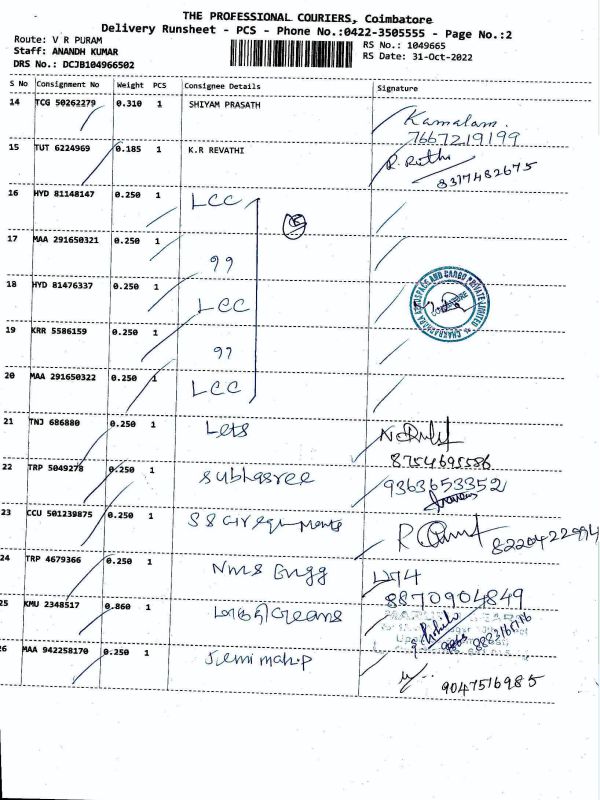 THE PROFESSIONAL COURIERS, Coimbatore
Delivery Runsheet - PCS - Phone No.:0422-3505555 - Page No.:2
Route: V R PURAM
RS No.: 1049665
Staff: ANANDH KUMAR
RS Date: 31-Oct-2022
DRS No.: DCJB104966502
S No Consignment No Weight PCS Consignee Details Signature
14 TCG 50262279 0.310 1 SHIYAM PRASATH Kamalam.
7667219199
15 TUT 6224969 0.185 1 K.R REVATHI
8317482675
16 HYD 81148147 0.250 1 LCC
17 MAA 291650321 0.250 1 99
18 HYD 81476337 0.250 1 LCC
19 KRR 5586159 0.250 1 99
20 MAA 291650322 0.250 1 LCC
21 TNJ 686880 0.250 1 Lets
8754695586
22 TRP 5049278 0.250 1 Subhasree 9363653352
23 CCU 501239875 0.250 1 8220422994
24 TRP 4679366 0.250 1 Nms Engg
8870904849
25 KMU 2348517 0.860 1
26 MAA 942258170 0.250 1 Jemimah.P
9047516985